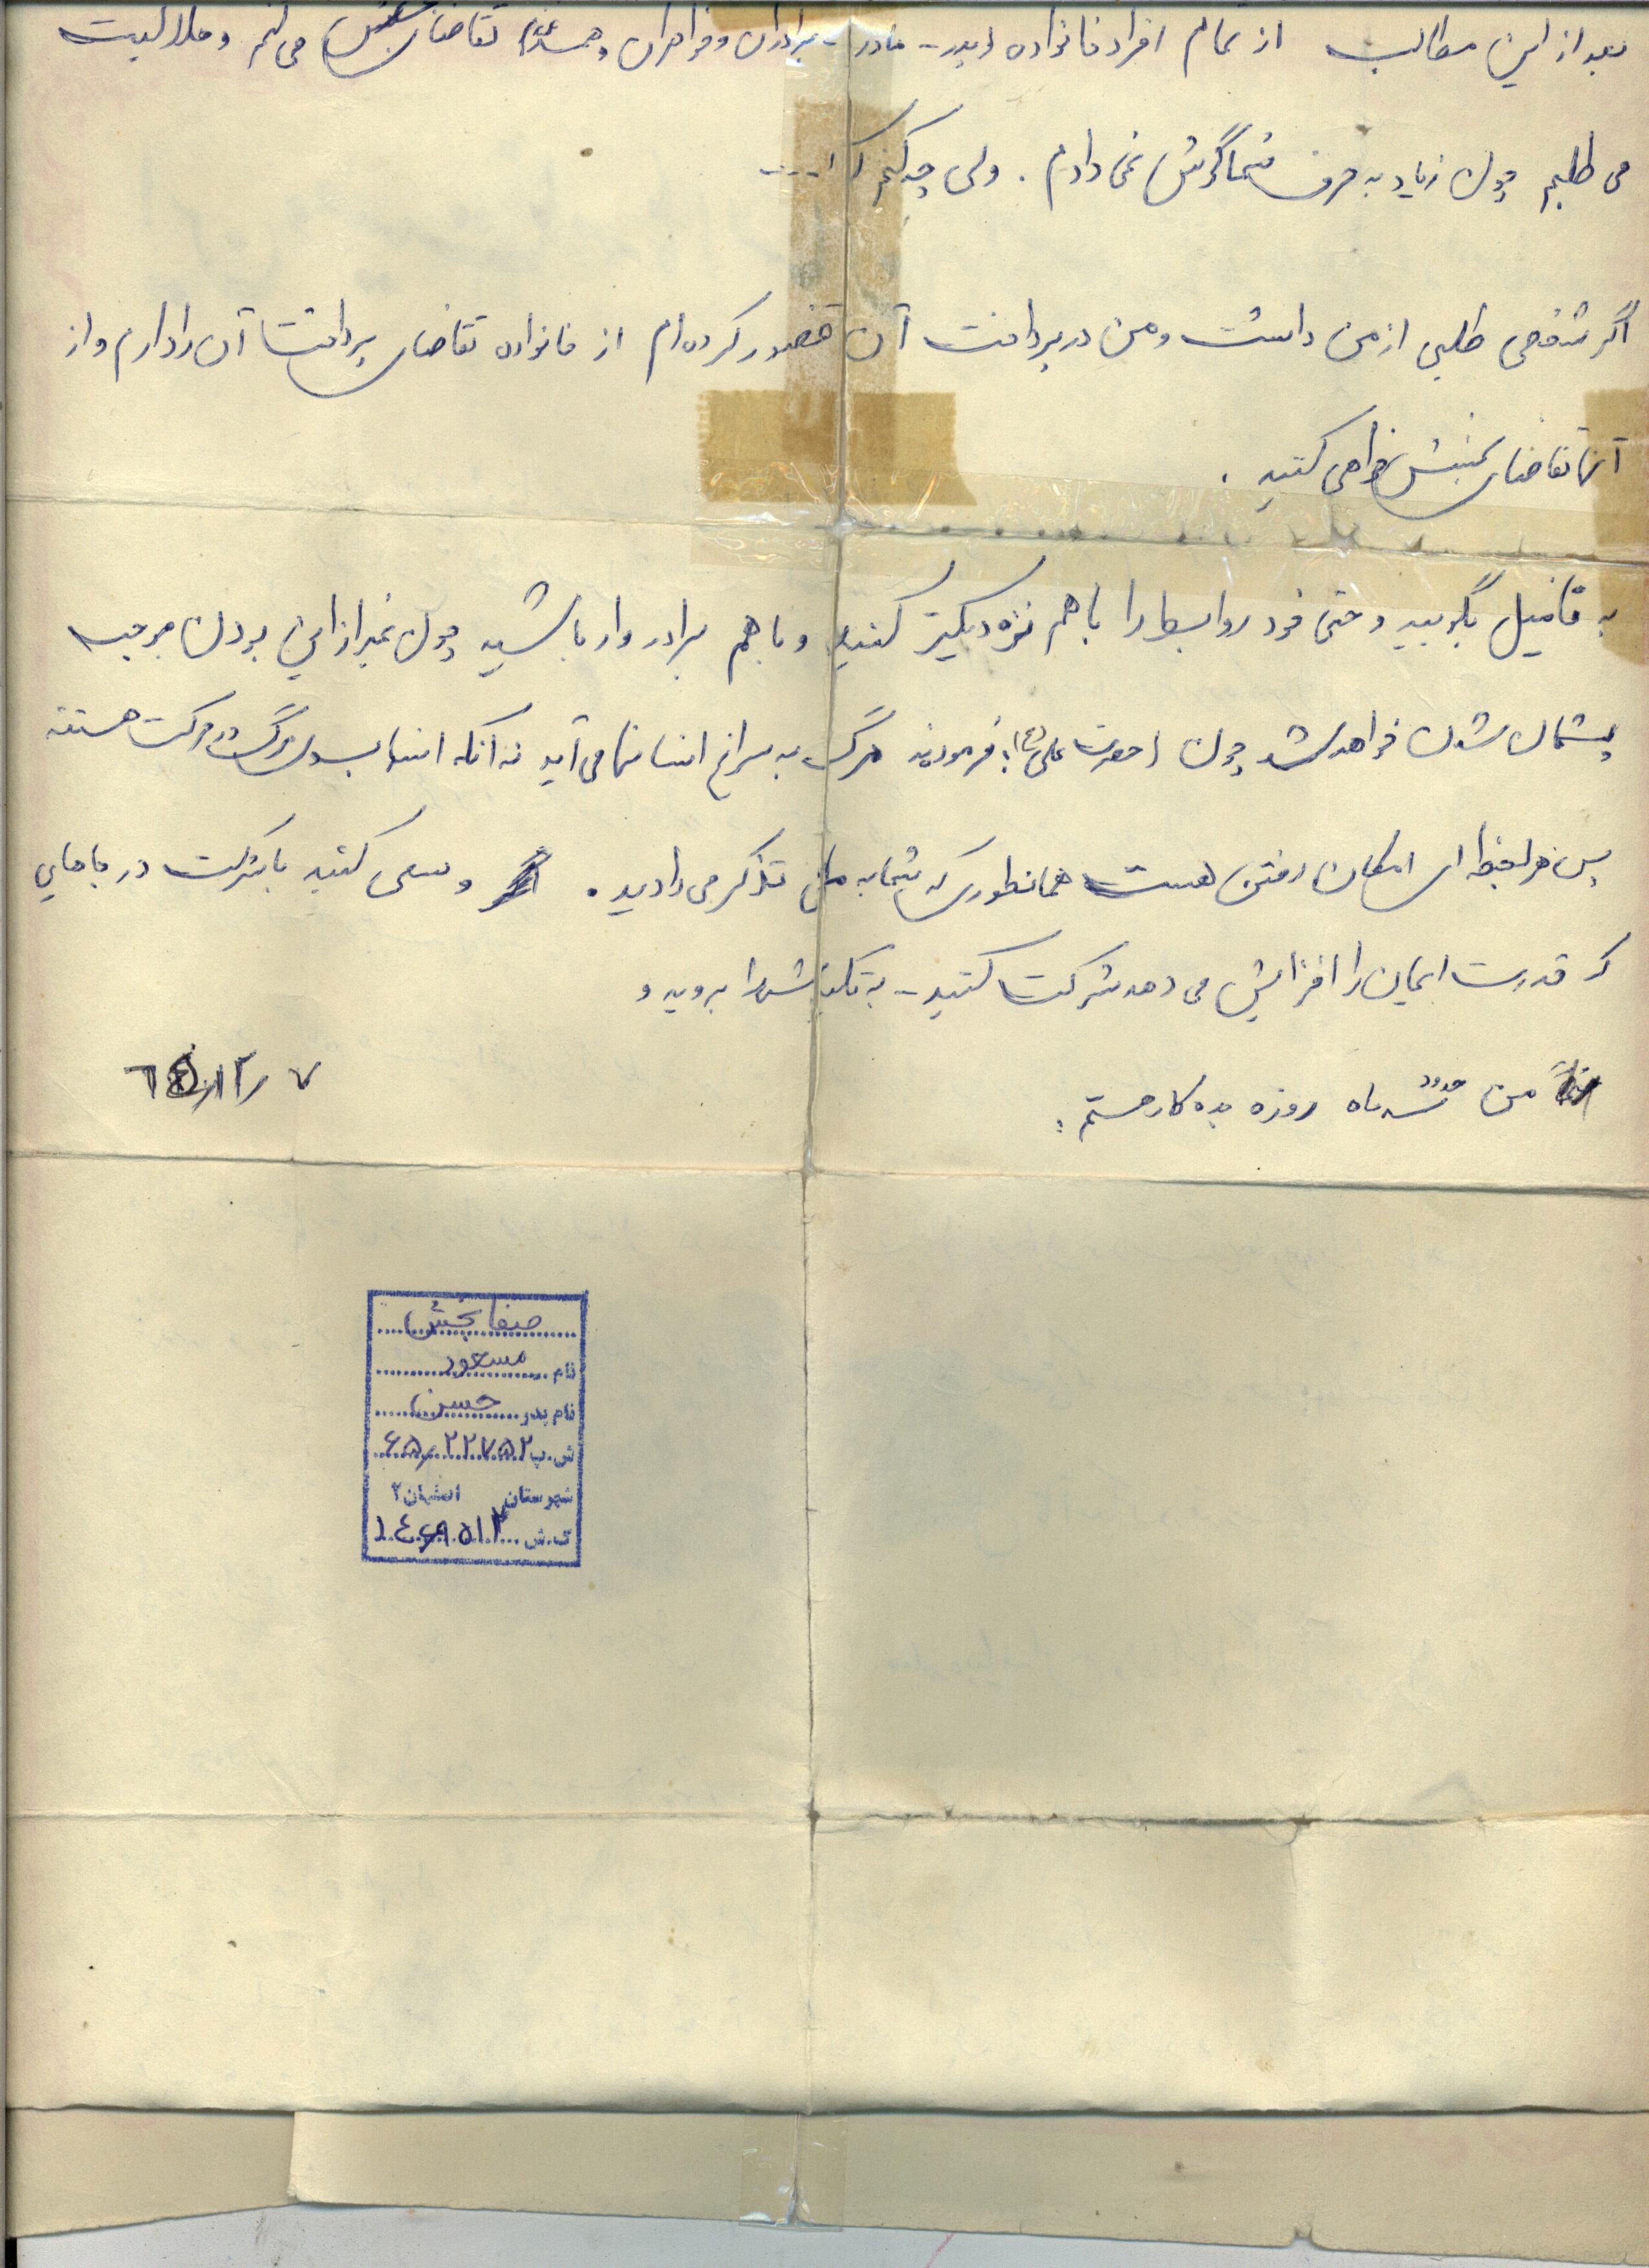 بعد از این مطالب از تمام افراد خانواده (پدر - مادر - برادران و خواهران و همسرم) تقاضای بخشش می کنم و حلالیت
می طلبم چون زیاد به حرف شما گوش نمی دادم . ولی چه کنم که ا.....
اگر شخصی طلبی از من داشت و من در پرداخت آن قصور کرده ام از خانواده تقاضای پرداخت آن را دارم و از
آنها تقاضای بخشش خواهی کنید .
به فامیل بگویید و حتی خود روابط را با هم نزدیکتر کنید و با هم برادر وار باشید چون غیر از این بودن موجب
پشیمان شدن خواهد شد چون (حضرت علی (ع)) فرمودند مرگ به سراغ انسانها می آید نه آنکه انسانها بسوی مرگ در حرکت هستند
پس هر لحظه ای امکان رفتن هست همانطوری که شما به من تذکر می دادید . و سعی کنید با شرکت در جاهایی
که قدرت ایمان را افزایش می دهد شرکت کنید - به تکایا شهدا بروید و
من حدود سه ماه روزه بده کار هستم .
٦٥/١٢/٧
صفابخش
نام مسعود
نام پدر حسن
ش.پ ۶۵/۲۲۷۵۲
شهرستان اصفهان ۲
ک.ش